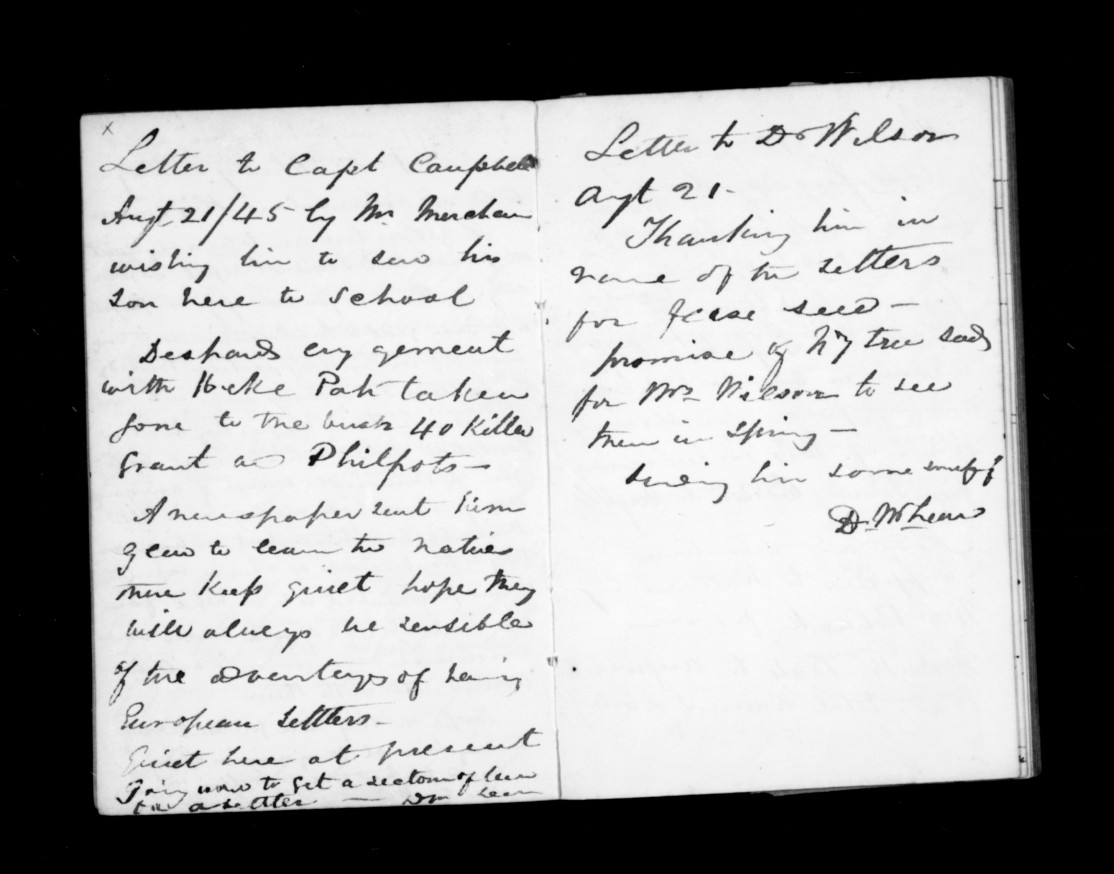 x
Letter to Capt Campbell
Augt 21/45 by Mr Merchan
wishing him to send his
son here to School
Despards engagement
with Heke Pah taken
gone to the bush 40 Killed
Grant and Philpots—
A newspaper sent him
glad to learn the natives
there keep quiet hope they
will always be sensible
of the advantages of having
European Settlers—
Quiet here at present
Going now to get a section of land
for a settler — D M Lean
Letter to Dr Wilson
Augt 21-
Thanking him in
name of the settlers
for furse seed—
promise of N7 tree seeds
for Mrs Wilson to see
them in Spring—
sending him some snuff
D. McLean